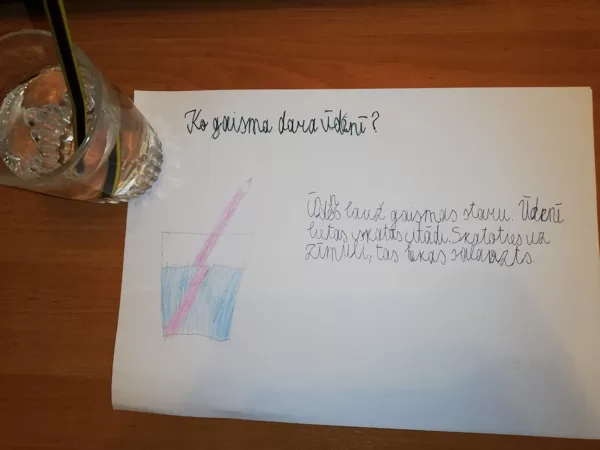 Ko gaisma dara ūdenī?
Ūdens lauž gaismas staru. Ūdenī
lietas skatās citādi. Skatoties uz
zīmuli, tas liekas salauzts.